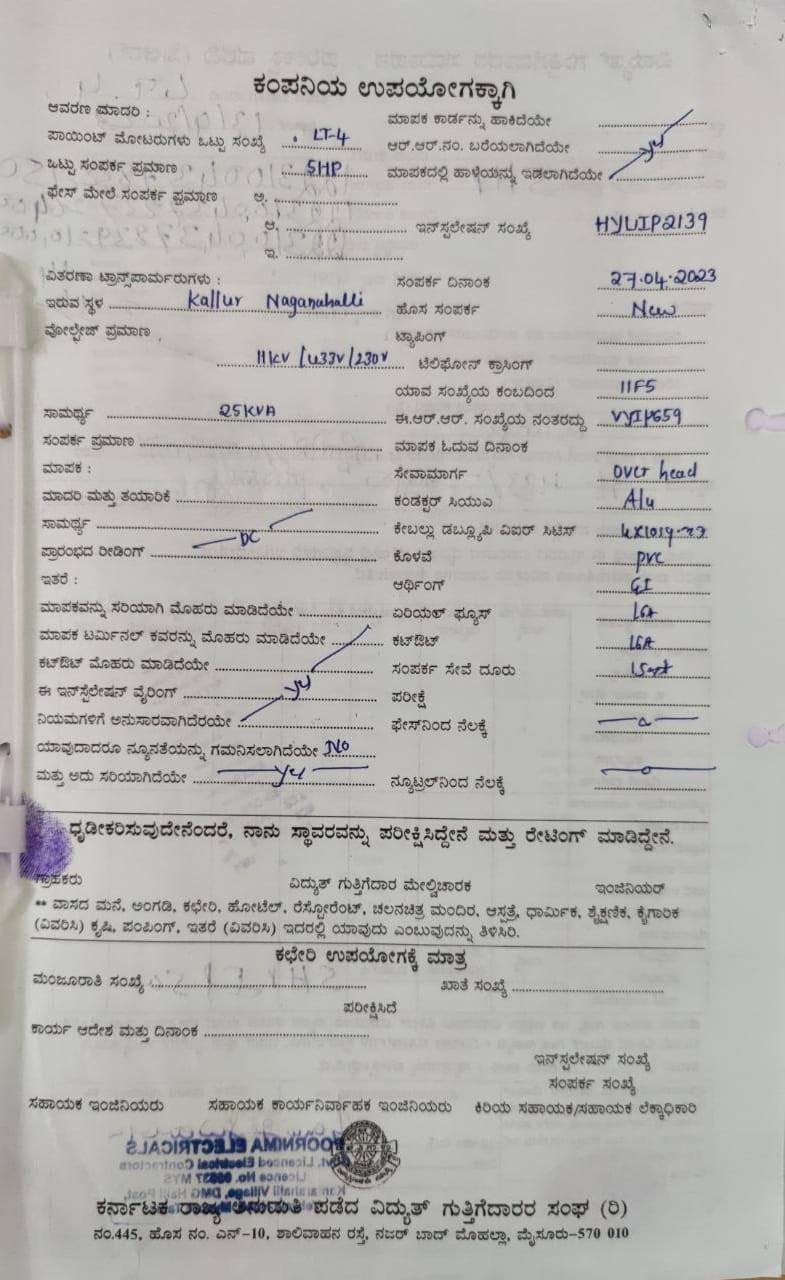 ಕಂಪನಿಯ ಉಪಯೋಗಕ್ಕಾಗಿ
ಆವರಣ ಮಾದರಿ : ಮಾಪಕ ಕಾರ್ಡನ್ನು ಹಾಕಿದೆಯೇ
ಪಾಯಿಂಟ್ ಮೋಟರುಗಳು ಒಟ್ಟು ಸಂಖ್ಯೆ LT-4 ಆರ್.ಆರ್.ನಂ. ಬರೆಯಲಾಗಿದೆಯೇ
ಒಟ್ಟು ಸಂಪರ್ಕ ಪ್ರಮಾಣ 5HP ಮಾಪಕದಲ್ಲಿ ಹಾಳೆಯನ್ನು ಇಡಲಾಗಿದೆಯೇ
ಫೇಸ್ ಮೇಲೆ ಸಂಪರ್ಕ ಪ್ರಮಾಣ ಅ.
ಆ. ಇನ್‌ಸ್ಟಲೇಷನ್ ಸಂಖ್ಯೆ HYLIP2139
ಇ.
ವಿತರಣಾ ಟ್ರಾನ್ಸ್‌ಪಾರ್ಮರುಗಳು : ಸಂಪರ್ಕ ದಿನಾಂಕ 27.04.2023
ಇರುವ ಸ್ಥಳ Kallur Naganahalli ಹೊಸ ಸಂಪರ್ಕ New
ವೋಲ್ಟೇಜ್ ಪ್ರಮಾಣ ಟ್ಯಾಪಿಂಗ್
11KV/433V/230V ಟೆಲಿಫೋನ್ ಕ್ರಾಸಿಂಗ್
ಯಾವ ಸಂಖ್ಯೆಯ ಕಂಬದಿಂದ 11F5
ಸಾಮರ್ಥ್ಯ 25KVA ಈ.ಆರ್.ಆರ್. ಸಂಖ್ಯೆಯ ನಂತರದ್ದು
ಸಂಪರ್ಕ ಪ್ರಮಾಣ ಮಾಪಕ ಓದುವ ದಿನಾಂಕ
ಮಾಪಕ : ಸೇವಾಮಾರ್ಗ Over head
ಮಾದರಿ ಮತ್ತು ತಯಾರಿಕೆ ಕಂಡಕ್ಟರ್ ಸಿಯುಎ Alu
ಸಾಮರ್ಥ್ಯ ಕೇಬಲ್ಲು ಡಬ್ಲ್ಯೂಪಿ ವಿಐರ್ ಸಿಟಿಸ್
ಪ್ರಾರಂಭದ ರೀಡಿಂಗ್ DC ಕೊಳವೆ PVC
ಇತರೆ : ಆರ್ಥಿಂಗ್ GI
ಮಾಪಕವನ್ನು ಸರಿಯಾಗಿ ಮೊಹರು ಮಾಡಿದೆಯೇ ಏರಿಯಲ್ ಫ್ಯೂಸ್ 16A
ಮಾಪಕ ಟರ್ಮಿನಲ್ ಕವರನ್ನು ಮೊಹರು ಮಾಡಿದೆಯೇ ಕಟ್‌ಔಟ್ 16A
ಕಟ್‌ಔಟ್ ಮೊಹರು ಮಾಡಿದೆಯೇ ಸಂಪರ್ಕ ಸೇವೆ ದೂರು
ಈ ಇನ್‌ಸ್ಟೆಲೇಷನ್ ವೈರಿಂಗ್ ಪರೀಕ್ಷೆ
ನಿಯಮಗಳಿಗೆ ಅನುಸಾರವಾಗಿದೆರಯೇ ಫೇಸ್‌ನಿಂದ ನೆಲಕ್ಕೆ
ಯಾವುದಾದರೂ ನ್ಯೂನತೆಯನ್ನು ಗಮನಿಸಲಾಗಿದೆಯೇ No
ಮತ್ತು ಅದು ಸರಿಯಾಗಿದೆಯೇ ನ್ಯೂಟ್ರಲ್‌ನಿಂದ ನೆಲಕ್ಕೆ
ಧೃಡೀಕರಿಸುವುದೇನೆಂದರೆ, ನಾನು ಸ್ಥಾವರವನ್ನು ಪರೀಕ್ಷಿಸಿದ್ದೇನೆ ಮತ್ತು ರೇಟಿಂಗ್ ಮಾಡಿದ್ದೇನೆ.
ಗ್ರಾಹಕರು ವಿದ್ಯುತ್ ಗುತ್ತಿಗೆದಾರ ಮೇಲ್ವಿಚಾರಕ ಇಂಜಿನಿಯರ್
** ವಾಸದ ಮನೆ, ಅಂಗಡಿ, ಕಛೇರಿ, ಹೋಟೆಲ್, ರೆಸ್ಟೋರೆಂಟ್, ಚಲನಚಿತ್ರ ಮಂದಿರ, ಆಸ್ಪತ್ರೆ, ಧಾರ್ಮಿಕ, ಶೈಕ್ಷಣಿಕ, ಕೈಗಾರಿಕ
(ವಿವರಿಸಿ) ಕೃಷಿ, ಪಂಪಿಂಗ್, ಇತರೆ (ವಿವರಿಸಿ) ಇದರಲ್ಲಿ ಯಾವುದು ಎಂಬುವುದನ್ನು ತಿಳಿಸಿರಿ.
ಕಛೇರಿ ಉಪಯೋಗಕ್ಕೆ ಮಾತ್ರ
ಮಂಜೂರಾತಿ ಸಂಖ್ಯೆ ಖಾತೆ ಸಂಖ್ಯೆ
ಪರೀಕ್ಷಿಸಿದೆ
ಕಾರ್ಯ ಆದೇಶ ಮತ್ತು ದಿನಾಂಕ
ಇನ್‌ಸ್ಟಲೇಷನ್ ಸಂಖ್ಯೆ
ಸಂಪರ್ಕ ಸಂಖ್ಯೆ
ಸಹಾಯಕ ಇಂಜಿನಿಯರು ಸಹಾಯಕ ಕಾರ್ಯನಿರ್ವಾಹಕ ಇಂಜಿನಿಯರು ಕಿರಿಯ ಸಹಾಯಕ/ಸಹಾಯಕ ಲೆಕ್ಕಾಧಿಕಾರಿ
POORNIMA ELECTRICALS
Govt. Licenced Electrical Contractors
ಕರ್ನಾಟಕ ರಾಜ್ಯ ಅನುಮತಿ ಪಡೆದ ವಿದ್ಯುತ್ ಗುತ್ತಿಗೆದಾರರ ಸಂಘ (ರಿ)
ನಂ.445, ಹೊಸ ನಂ. ಎನ್-10, ಶಾಲಿವಾಹನ ರಸ್ತೆ, ನಜರ್ ಬಾದ್ ಮೊಹಲ್ಲಾ, ಮೈಸೂರು-570 010